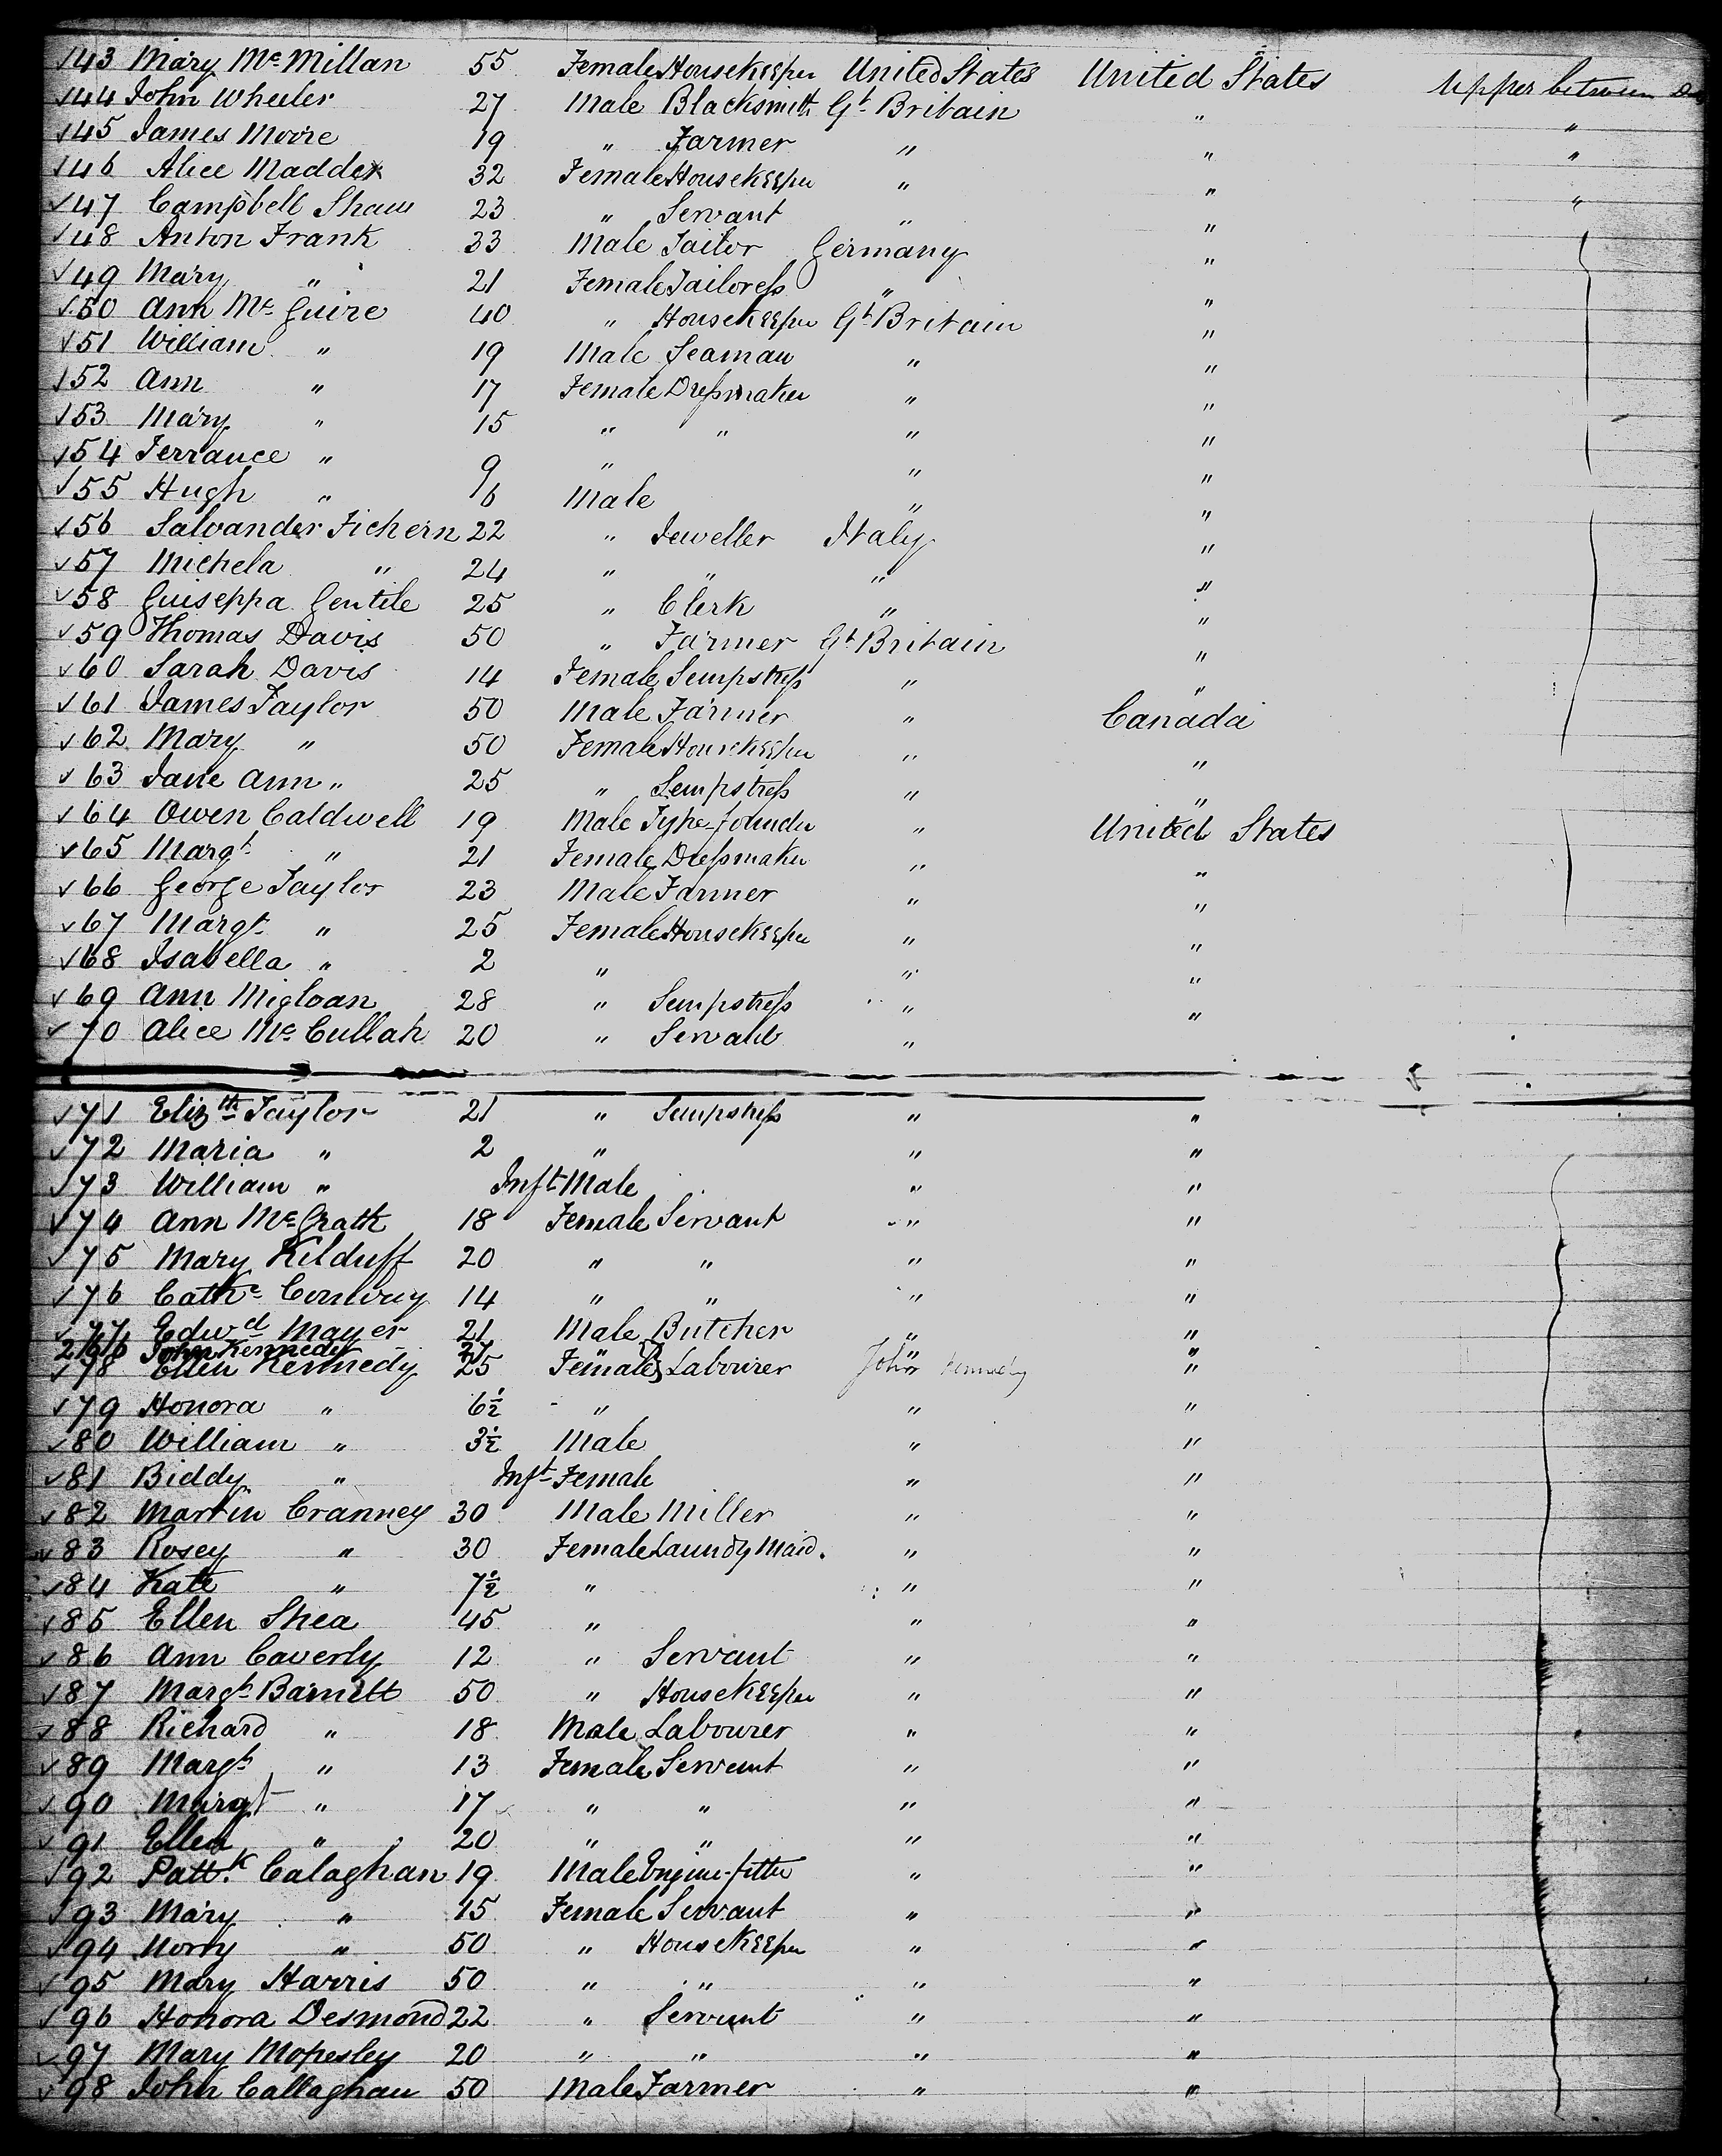 43 Mary Mc Millan 55 Female Housekeeper United States United States Upper between
44 John Wheeler 27 Male Blacksmith Gt Britain " "
45 James Moore 19 " Farmer " " "
46 Alice Madden 32 Female Housekeeper " " "
47 Campbell Shaw 23 " Servant " "
48 Anton Frank 33 Male Tailor Germany "
49 Mary " 21 Female Tailoress " "
50 Ann Mc Guire 40 " Housekeeper Gt Britain "
51 William " 19 Male Seaman " "
52 Ann " 17 Female Dressmaker " "
53 Mary " 15 " " " "
54 Terrance " 9 " " "
55 Hugh " 6 Male " "
56 Salvander Fichern 22 " Jeweller Italy "
57 Michela " 24 " " " "
58 Guiseppa Gentile 25 " Clerk " "
59 Thomas Davis 50 " Farmer Gt Britain "
60 Sarah Davis 14 Female Sempstress " "
61 James Taylor 50 Male Farmer " Canada
62 Mary " 50 Female Housekeeper " "
63 Jane Ann " 25 " Sempstress " "
64 Owen Caldwell 19 Male Type-founder " United States
65 Margt " 21 Female Dressmaker " "
66 George Taylor 23 Male Farmer " "
67 Margt " 25 Female Housekeeper " "
68 Isabella " 2 " " "
69 Ann Migloan 28 " Sempstress " "
70 Alice Mc Cullah 20 " Servant "
71 Elizth Taylor 21 " Sempstress " "
72 Maria " 2 " " "
73 William " Inft Male " "
74 Ann Mc Grath 18 Female Servant " "
75 Mary Kilduff 20 " " " "
76 Cathe Conway 14 " " " "
77 Edwd Mayer 21 Male Butcher " "
John Kennedy " " "
78 Ellen Kennedy 25 Female Labourer John Kennedy "
79 Honora " 6½ " " "
80 William " 3½ Male " "
81 Biddy " Inft Female " "
82 Martin Cranney 30 Male Miller " "
83 Rosey " 30 Female Laundy Maid. " "
84 Kate " 7½ " " "
85 Ellen Shea 45 " " "
86 Ann Caverly 12 " Servant " "
87 Margt Barnett 50 " Housekeeper " "
88 Richard " 18 Male Labourer " "
89 Margt " 13 Female Servant " "
90 Margt " 17 " " " "
91 Ellen " 20 " " " "
92 Patt.k Calaghan 19 Male Engine-fitter " "
93 Mary " 15 Female Servant " "
94 Norry " 50 " Housekeeper " "
95 Mary Harris 50 " " " "
96 Honora Desmond 22 " Servant " "
97 Mary Mopesley 20 " " " "
98 John Callaghan 50 Male Farmer " "